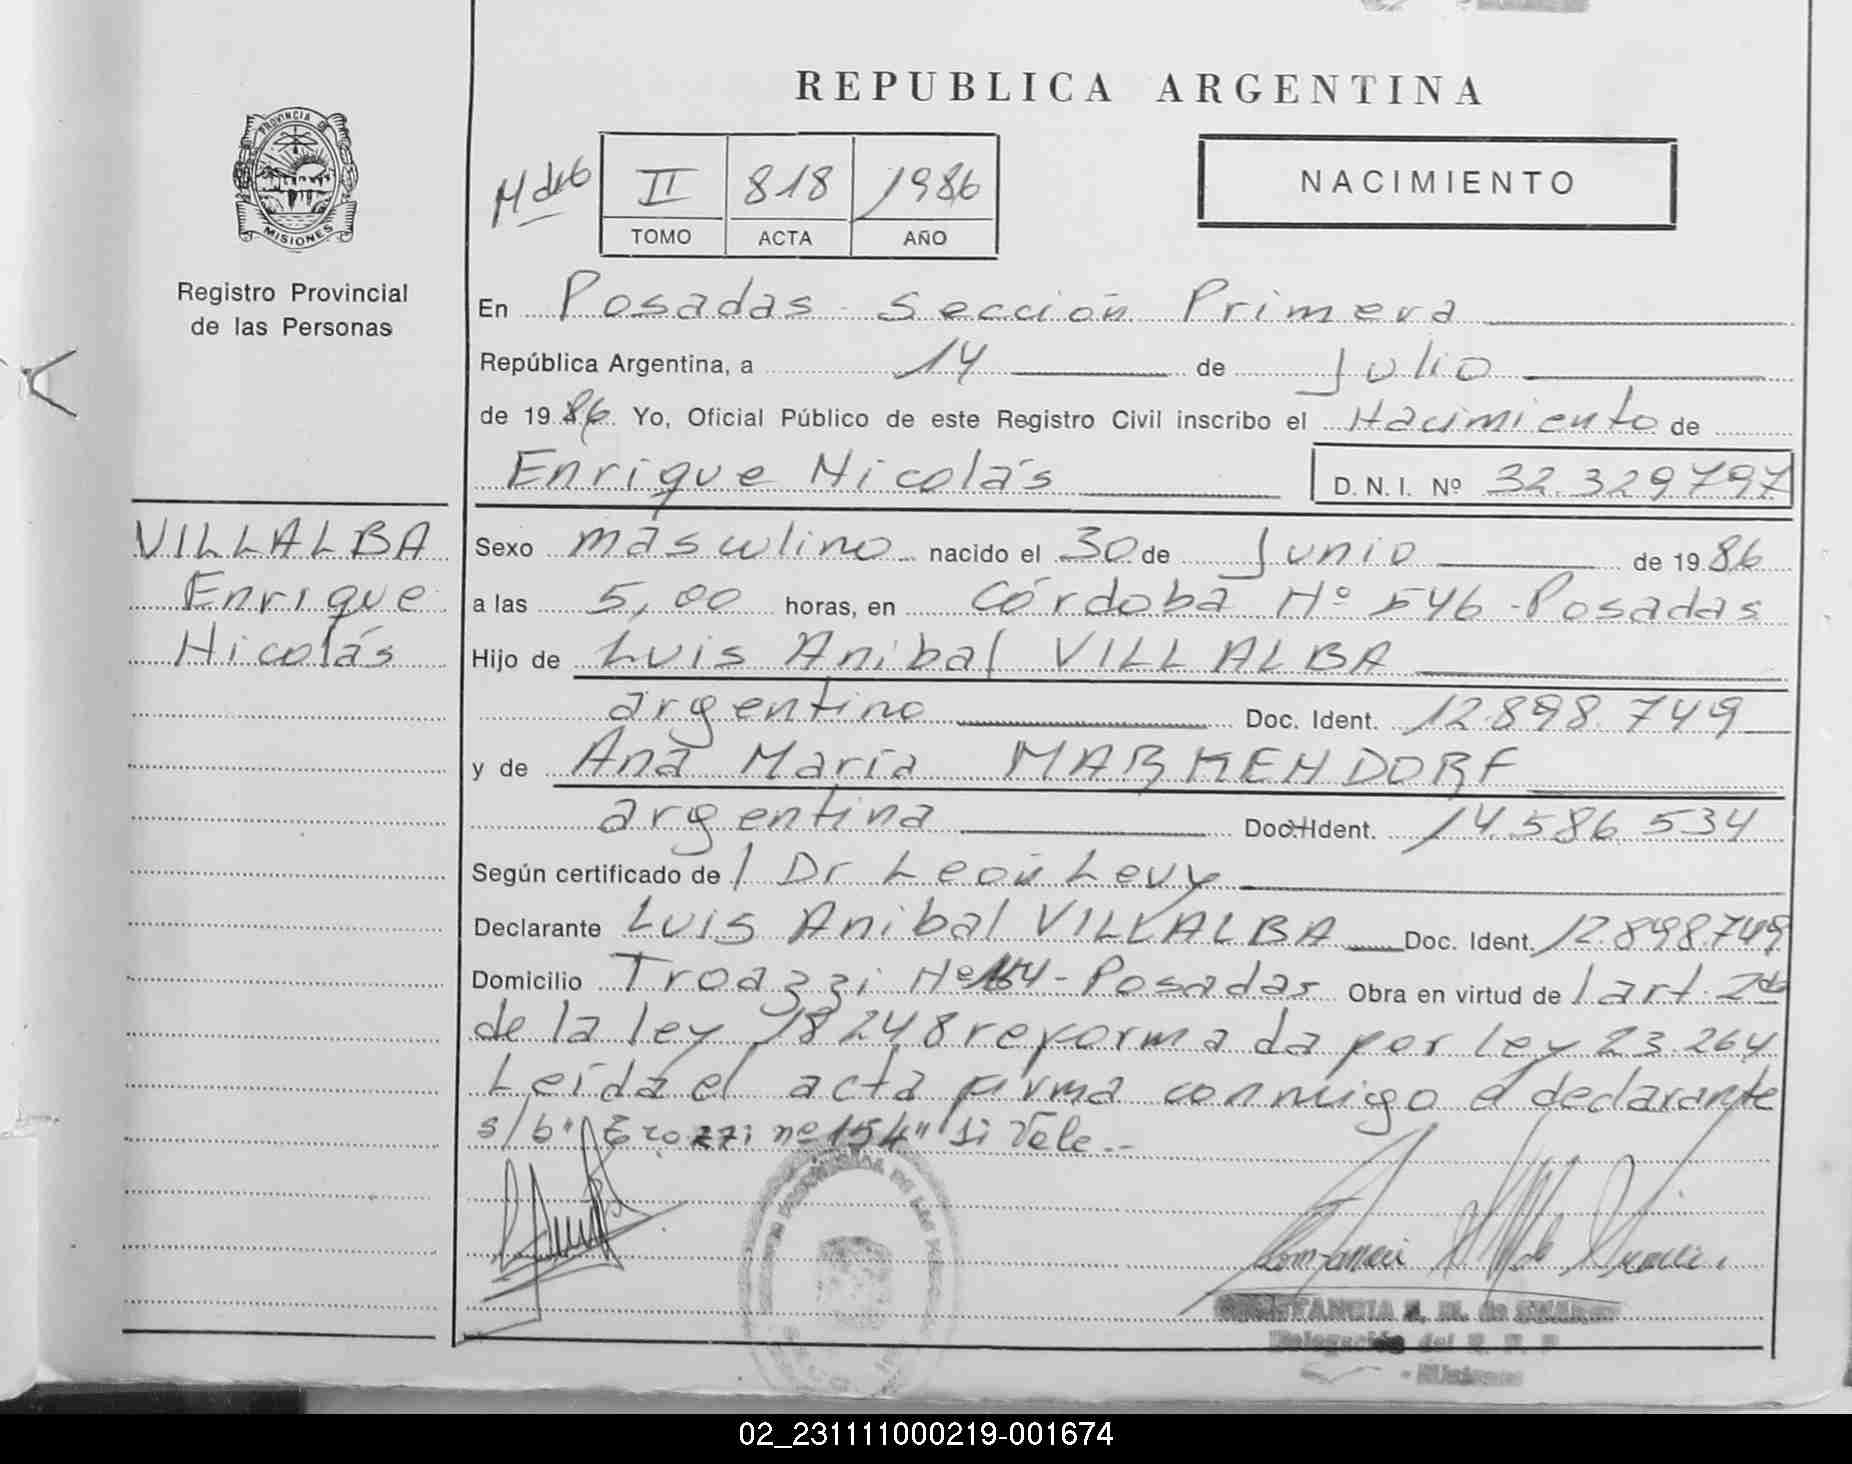 REPUBLICA ARGENTINA
PROVINCIA DE
MISIONES
Registro Provincial
de las Personas
II 818 1986
TOMO ACTA AÑO
NACIMIENTO
En Posadas - Sección Primera
República Argentina, a 14 de Julio
de 1986 Yo, Oficial Público de este Registro Civil inscribo el Nacimiento de
Enrique Nicolás D. N. I. Nº 32.329797
VILLALBA
Enrique
Nicolás
Sexo masculino nacido el 30 de Junio de 1986
a las 5,00 horas, en Córdoba Nº 546 - Posadas
Hijo de Luis Anibal VILLALBA
argentino Doc. Ident. 12.898.749
y de Ana María MARKENDORF
argentina Doc. Ident. 14.586.534
Según certificado de / Dr León Levy
Declarante Luis Anibal VILLALBA Doc. Ident. 12.898.749
Domicilio Troazzi Nº 154 - Posadas Obra en virtud de / art. 2do
de la ley 18248 reformada por ley 23.264
Leída el acta firma conmigo el declarante
s/b" nº 154" Si Vale.-
CONSTANCIA de SUAREZ
Delegación del R. P. P
02_231111000219-001674